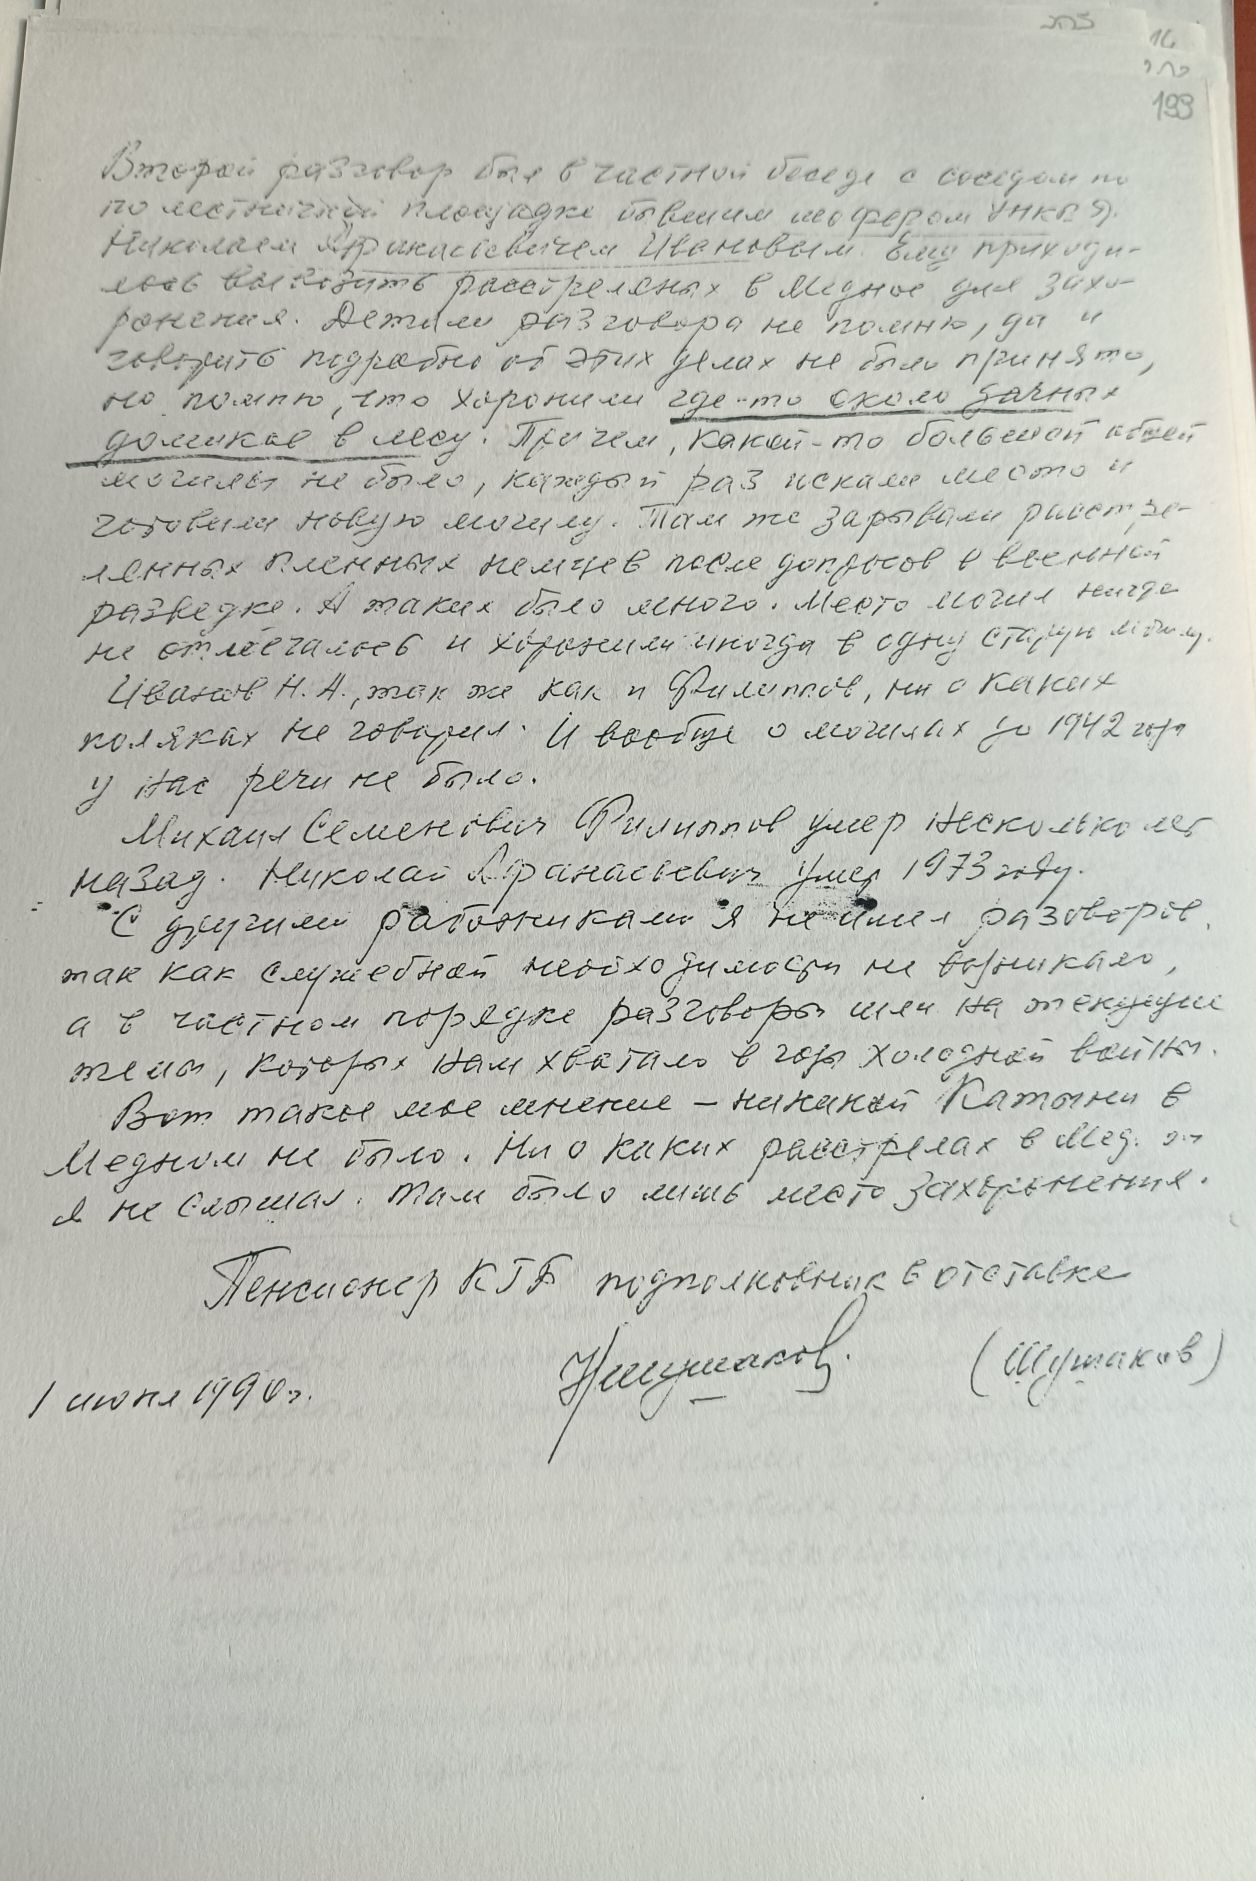 16
199
Второй разговор был в частной беседе с соседом по
по лестничной площадке бывшим шофером УНКВД.
Николаем Афанасьевичем Ивановым. Ему приходи-
лось вывозить расстреляных в Медное для захо-
ронения. Детали разговора не помню, да и
говорить подробно об этих делах не было принято,
но помню, что хоронили где-то около дачных
домиков в лесу. Причем, какой-то большой общей
могилы не было, каждый раз искали место и
готовили новую могилу. Там же зарывали расстре-
лянных пленных немцев после допросов в военной
разведке. А таких было много. Место могил нигде
не отмечалось и хоронили иногда в одну старую могилу.
Иванов Н.А., так же как и Филиппов, ни о каких
поляках не говорил. И вообще о могилах до 1942 года
у нас речи не было.
Михаил Семенович Филиппов умер несколько лет
назад. Николай Афанасьевич умер 1973 году.
С другими работниками я не имел разговоров,
так как служебной необходимости не возникало,
а в частном порядке разговоры шли на текущие
темы, которых нам хватало в годы холодной войны.
Вот такое мое мнение – никакой Катыни в
Медном не было. Ни о каких расстрелах в Мед.
я не слышал. Там было лишь место захоронения.
Пенсионер КГБ подполковник в отставке
(Шушаков)
1 июня 1990 г.